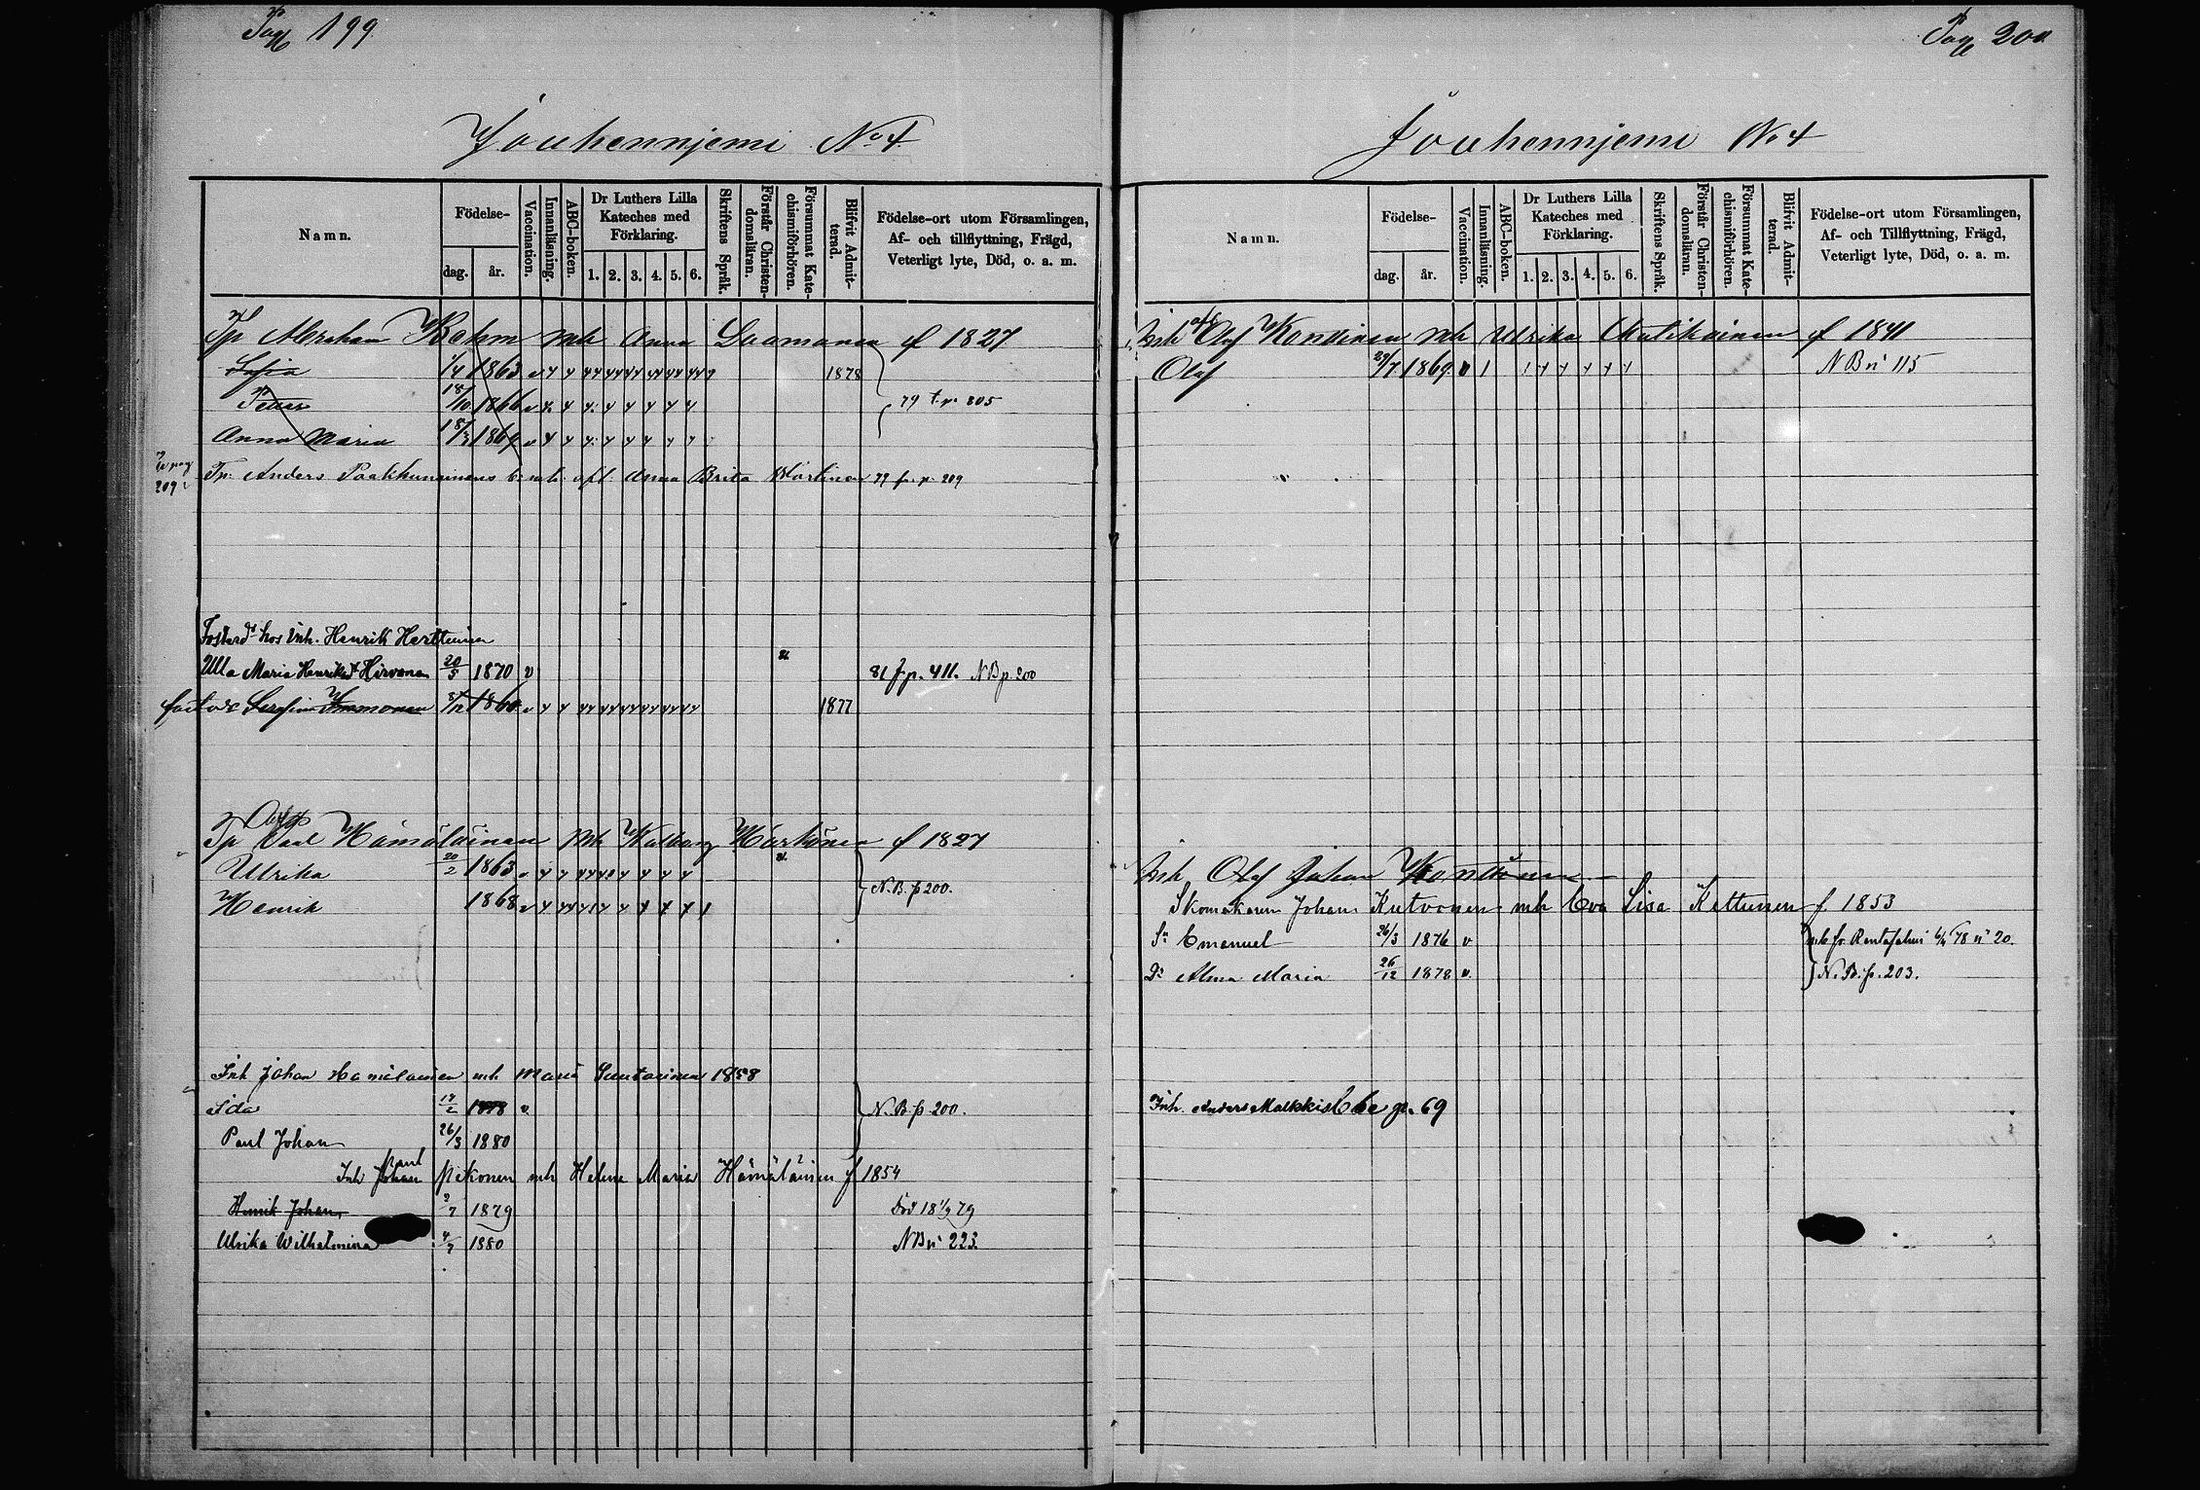 Pag 199
Jouhennjemi No 4
Namn.
Födelse-
dag.
år.
Vaccination.
Innanläsning.
ABC-boken.
Dr Luthers Lilla
Kateches med
Förklaring.
1. 2. 3. 4. 5. 6.
Skriftens Språk.
Förstår Christen-
domsläran.
Försummat Kate-
chismiförhören.
Blifvit Admit-
terad.
Födelse-ort utom Församlingen,
Af- och tillflyttning, Frägd,
Veterligt lyte, Död, o. a. m.
Tp Abraham Bohm mh Anna f 1827
Sofia 1/4 1863 1878
Petter 18/10 1866 79 t. p. 205
Anna Maria 1869
209
Tp. Anders mh Anna Brita 79 p. 209
hos Inh. Henrik Herttuinen
Ulla Maria Henriksd Hirvonen 20/5 1870 v 81 f. p. 411. NB p 200
Serafina Immonen 1860 1877
Tp Paul Hämäläinen mh Walborg Härkönen f 1827
Ulrika 20/2 1863 N.B. p 200.
Henrik 1868
Inh Johan Hämäläinen mh Maria 1858
Ida 17/2 1878 v. N.B. p 200.
Paul Johan 26/3 1880
Paul
Inh Johan Pikonen mh Helena Maria Hämäläinen f 1854
Henrik Johan 2/7 1879 Död 18 1/9 79
Ulrika Wilhelmina 4/7 1880 NB n: 223
Pag 200
Jouhennjemi No 4
Namn.
Födelse-
dag.
år.
Vaccination.
Innanläsning.
ABC-boken.
Dr Luthers Lilla
Kateches med
Förklaring.
1. 2. 3. 4. 5. 6.
Skriftens Språk.
Förstår Christen-
domsläran.
Försummat Kate-
chismiförhören.
Blifvit Admit-
terad.
Födelse-ort utom Församlingen,
Af- och Tillflyttning, Frägd,
Veterligt lyte, Död, o. a. m.
Inh Olof Konttinen mh Ulrika f 1841
Olof 29/7 1869 v NB n: 115
Inh Olof Johan Konttinen
Skomakaren Johan Kutvonen mh Eva Lisa Kettunen f. 1853
Sn Emanuel 26/3 1876 v mb fr. Rantasalmi 6/4 78 n: 20.
Dr Alma Maria 26/12 1878 v. N.B. p. 203.
Inh. Anders p. 69